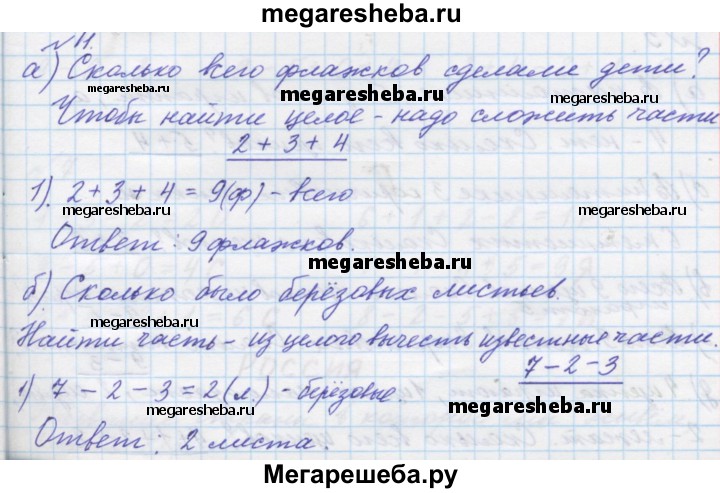 megaresheba.ru
№ 11.
а) Сколько всего флажков сделали дети?
megaresheba.ru
megaresheba.ru
megaresheba.ru
Чтобы найти целое - надо сложить части
2 + 3 + 4
1). 2 + 3 + 4 = 9(ф) - всего
megaresheba.ru
megaresheba.ru
Ответ: 9 флажков.
megaresheba.ru
б) Сколько было берёзовых листьев.
megaresheba.ru
megaresheba.ru
Найти часть - из целого вычесть известные части.
7 - 2 - 3
1) 7 - 2 - 3 = 2(л.) - берёзовые.
megaresheba.ru
megaresheba.ru
Ответ: 2 листа.
megaresheba.ru
Мегарешеба.ру